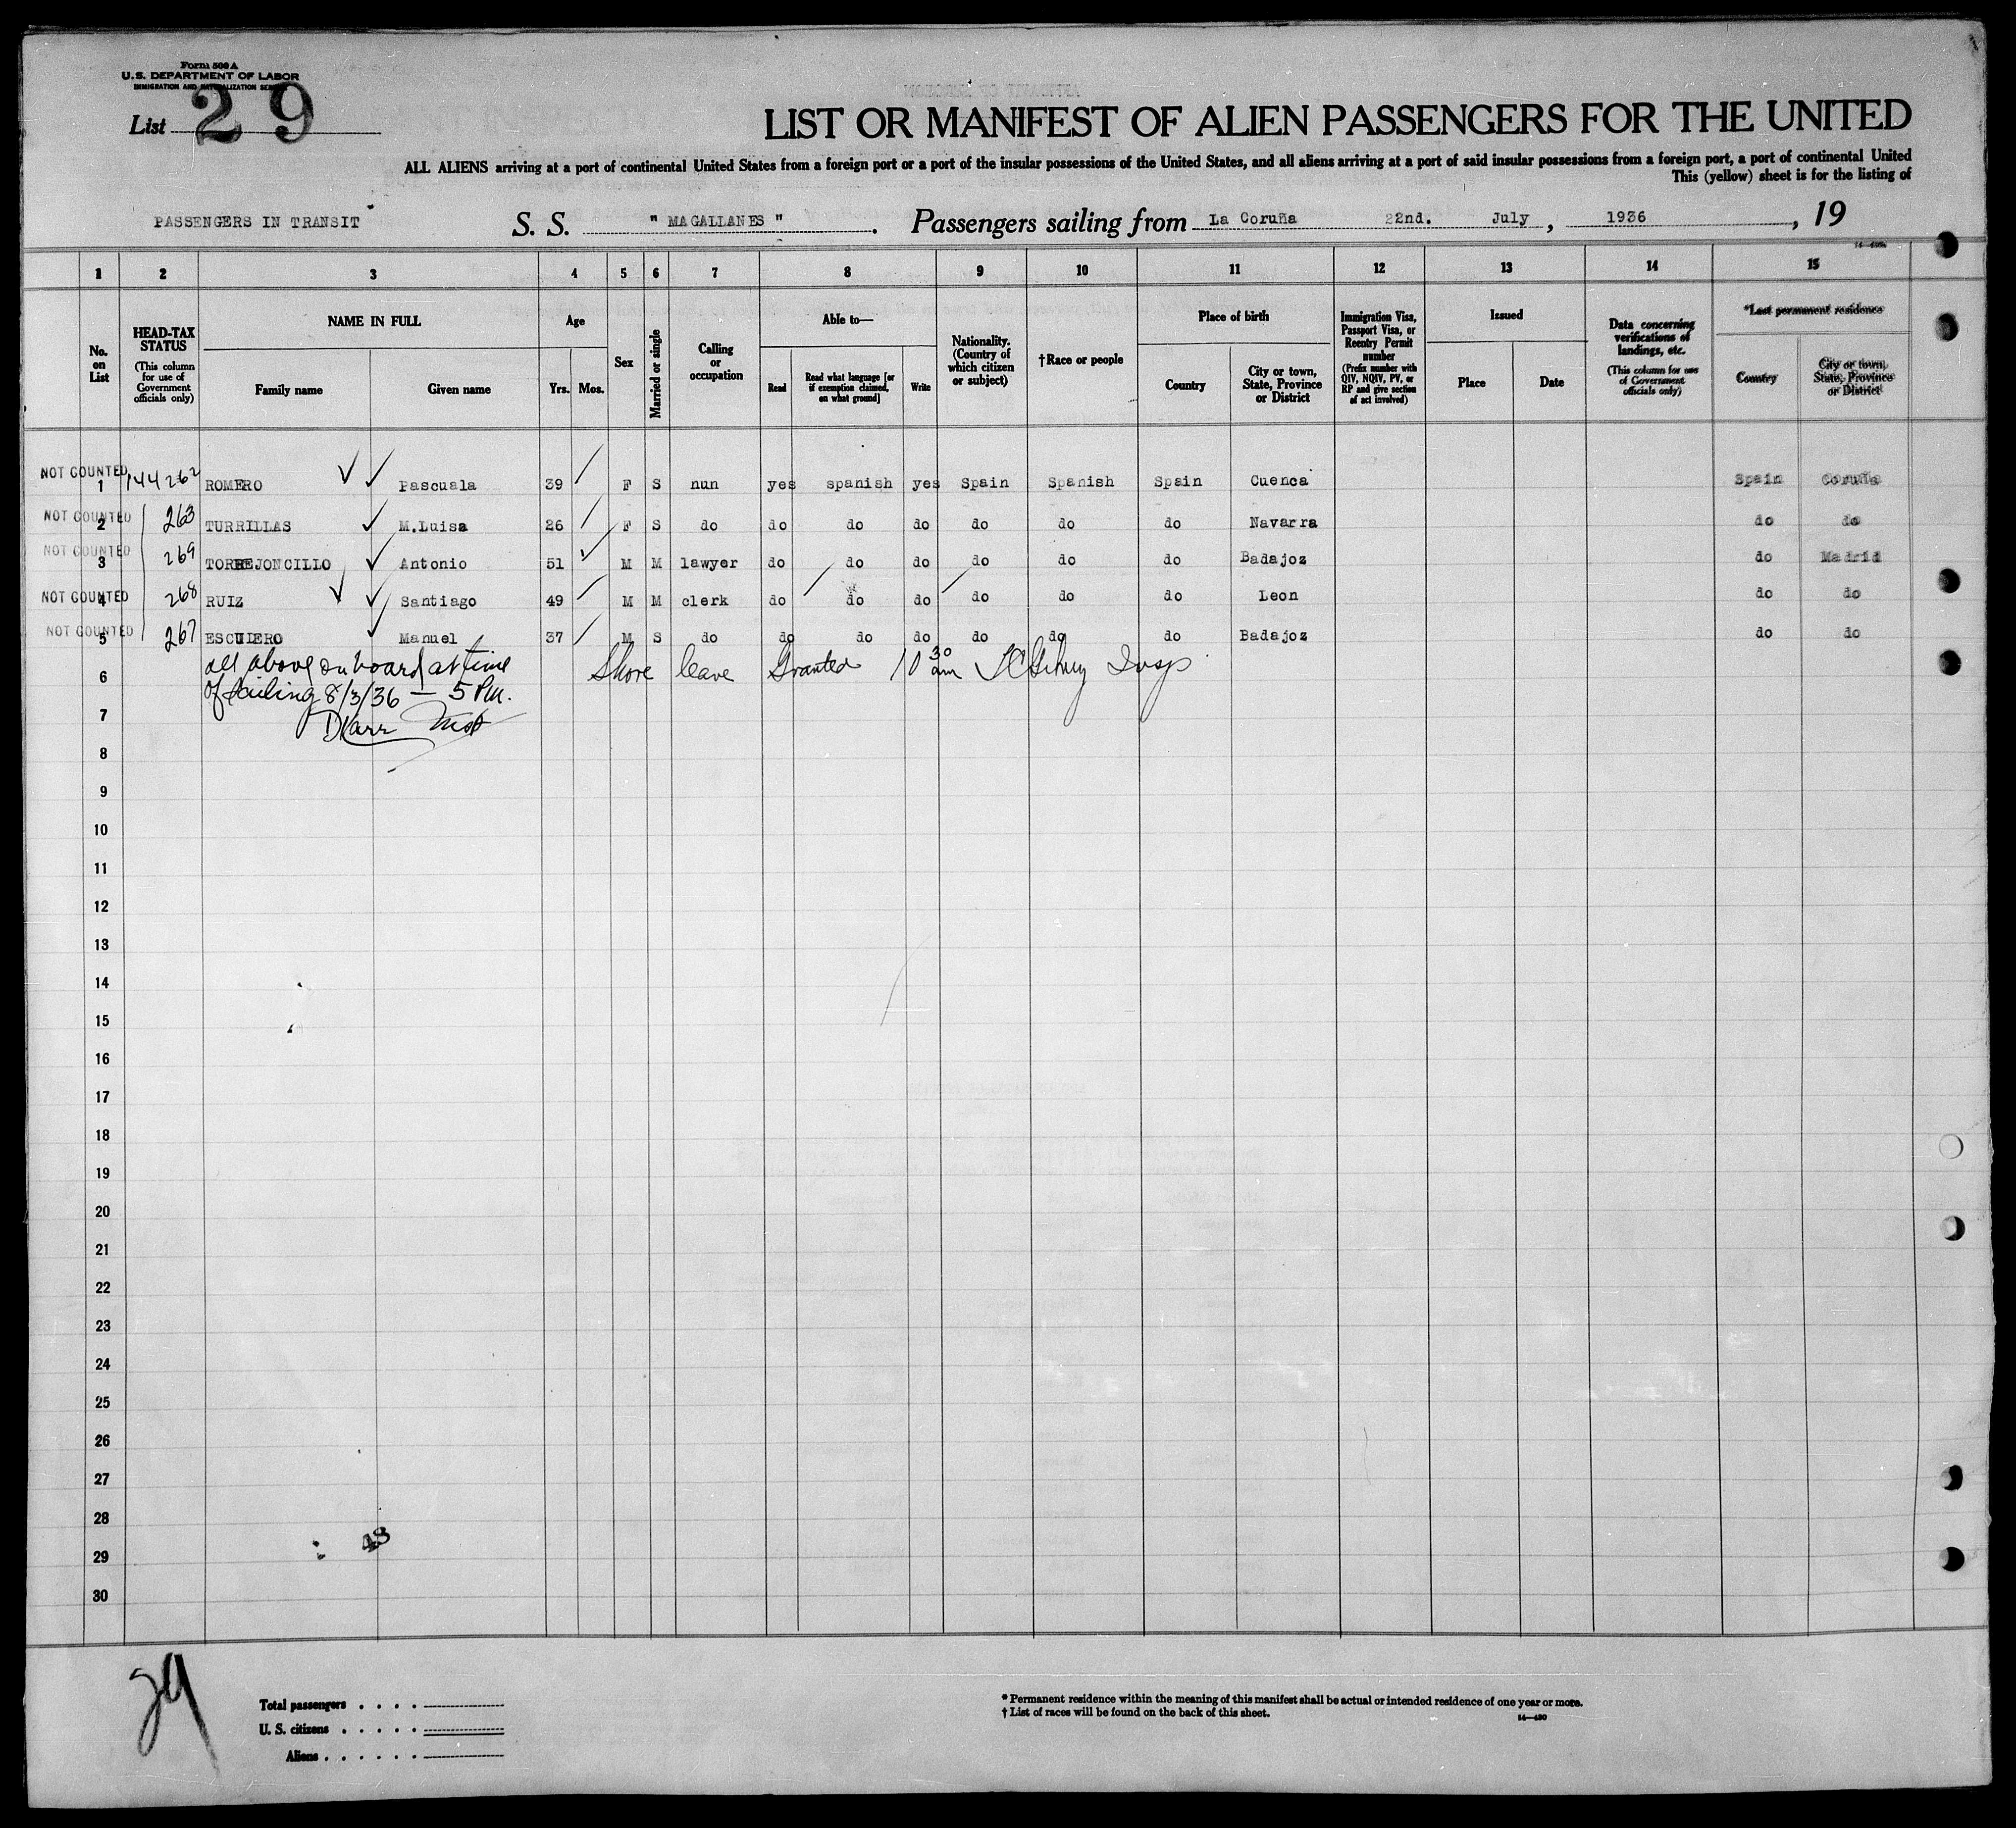 Form 500 A
U.S. DEPARTMENT OF LABOR
IMMIGRATION AND NATURALIZATION SERVICE
List 29
LIST OR MANIFEST OF ALIEN PASSENGERS FOR THE UNITED
ALL ALIENS arriving at a port of continental United States from a foreign port or a port of the insular possessions of the United States, and all aliens arriving at a port of said insular possessions from a foreign port, a port of continental United
This (yellow) sheet is for the listing of
PASSENGERS IN TRANSIT S. S. " MAGALLANES " . Passengers sailing from La Coruña 22nd. July , 1936 , 19
1 2 3 4 5 6 7 8 9 10 11 12 13 14 15
No. on List
HEAD-TAX STATUS (This column for use of Government officials only)
NAME IN FULL Family name Given name
Age Yrs. Mos.
Sex
Married or single
Calling or occupation
Able to— Read Read what language [or if exemption claimed, on what ground] Write
Nationality. (Country of which citizen or subject)
†Race or people
Place of birth Country City or town, State, Province or District
Immigration Visa, Passport Visa, or Reentry Permit number (Prefix number with QIV, NQIV, PV, or RP and give section of act involved)
Issued Place Date
Data concerning verifications of landings, etc. (This column for use of Government officials only)
*Last permanent residence Country City or town, State, Province or District
NOT COUNTED 1 144262 ROMERO Pascuala 39 F S nun yes spanish yes Spain Spanish Spain Cuenca Spain Coruña
NOT COUNTED 2 263 TURRILLAS M.Luisa 26 F S do do do do do do do Navarra do do
NOT COUNTED 3 269 TORREJONCILLO Antonio 51 M M lawyer do do do do do do Badajoz do Madrid
NOT COUNTED 4 268 RUIZ Santiago 49 M M clerk do do do do do do Leon do do
NOT COUNTED 5 267 ESCUIERO Manuel 37 M S do do do do do do do Badajoz do do
6 all above on board at time Shore leave Granted 10 30 am Insp
of sailing 8/3/36 — 5 P.M.
7
8
9
10
11
12
13
14
15
16
17
18
19
20
21
22
23
24
25
26
27
28
48
29
30
29
Total passengers . . . .
U. S. citizens . . . . .
Aliens . . . . . .
* Permanent residence within the meaning of this manifest shall be actual or intended residence of one year or more.
† List of races will be found on the back of this sheet.
14—430